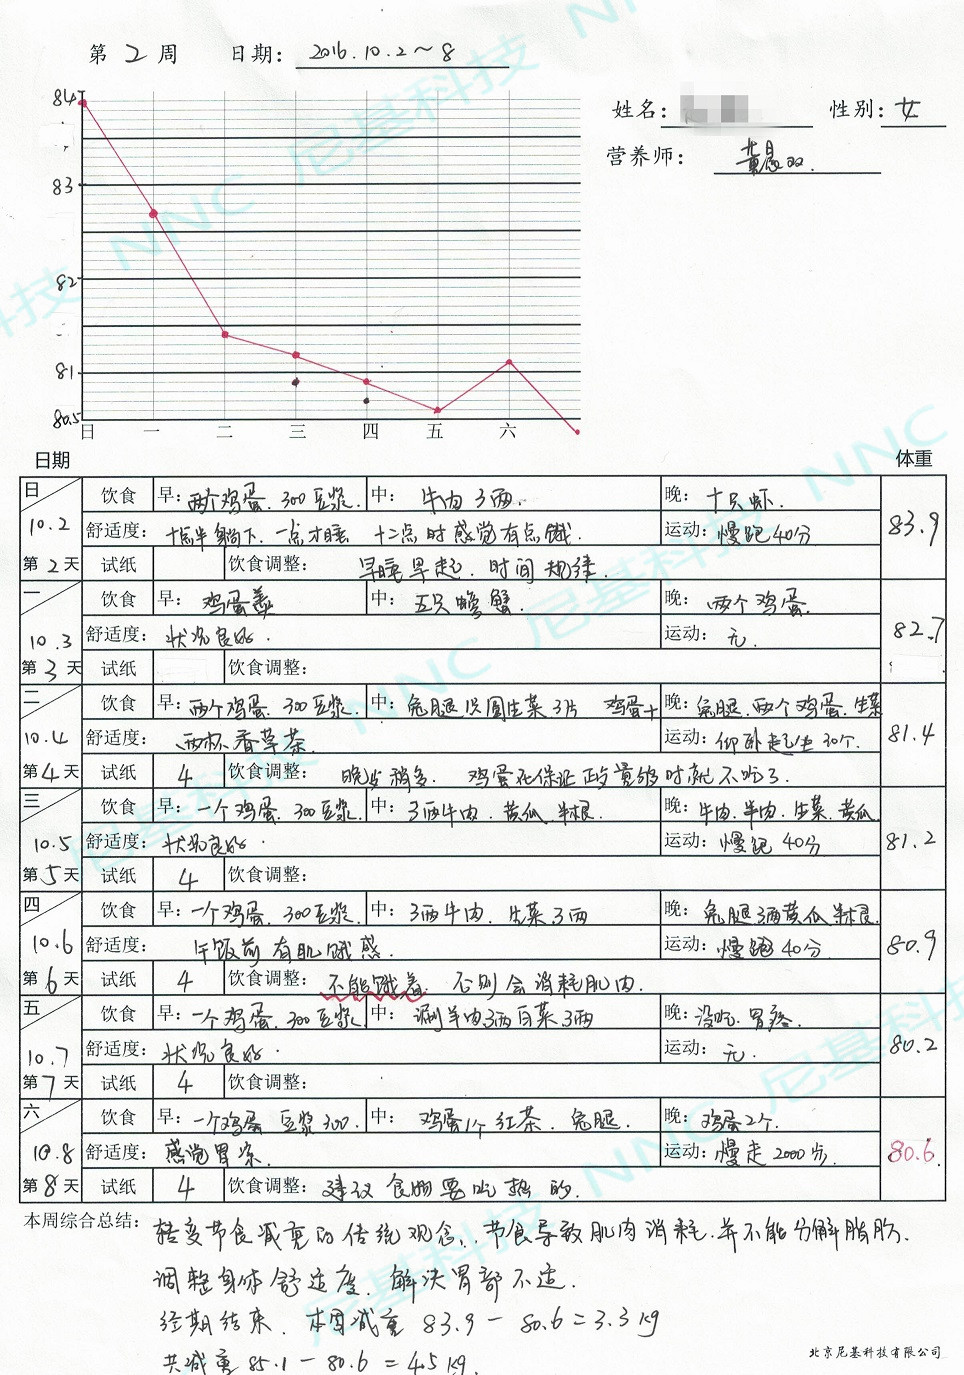 第 2 周 日期: 2016.10.2～8
84
83
82
81
80.5
日 一 二 三 四 五 六
姓名: 性别: 女
营养师:
日期 体重
日 饮食 早: 两个鸡蛋. 300豆浆. 中: 牛肉 3两. 晚: 十只虾
10.2 舒适度: 十点半躺下. 一点才睡 十二点时感觉有点饿. 运动: 慢跑40分 83.9
第 2 天 试纸 饮食调整: 早睡早起. 时间规律.
一 饮食 早: 鸡蛋羹 中: 五只螃蟹. 晚: 两个鸡蛋.
10.3 舒适度: 状况良好. 运动: 无. 82.7
第 3 天 试纸 饮食调整:
二 饮食 早: 两个鸡蛋. 300豆浆. 中: 兔腿 圆生菜3片 鸡蛋 晚: 兔腿.两个鸡蛋.生菜
10.4 舒适度: 两杯香草茶. 运动: 仰卧起坐 30个. 81.4
第 4 天 试纸 4 饮食调整: 晚上稍多. 鸡蛋在保证 量够时就不吃了.
三 饮食 早: 一个鸡蛋. 300豆浆. 中: 3两牛肉. 黄瓜半根. 晚: 牛肉.羊肉.生菜.黄瓜
10.5 舒适度: 状况良好. 运动: 慢跑 40分 81.2
第 5 天 试纸 4 饮食调整:
四 饮食 早: 一个鸡蛋. 300豆浆. 中: 3两牛肉. 生菜3两 晚: 兔腿3两黄瓜半根.
10.6 舒适度: 午饭前有肌饿感. 运动: 慢跑40分. 80.9
第 6 天 试纸 4 饮食调整: 不能饿着. 否则会消耗肌肉.
五 饮食 早: 一个鸡蛋. 300豆浆. 中: 涮羊肉3两白菜3两 晚: 没吃.胃疼.
10.7 舒适度: 状况良好. 运动: 无. 80.2
第 7 天 试纸 4 饮食调整:
六 饮食 早: 一个鸡蛋 豆浆300. 中: 鸡蛋1个 红茶. 兔腿. 晚: 鸡蛋2个.
10.8 舒适度: 感觉胃凉. 运动: 慢走 2000步. 80.6.
第 8 天 试纸 4 饮食调整: 建议食物要吃热的.
本周综合总结: 转变节食减重的传统观念. 节食导致肌肉消耗.并不能分解脂肪.
调整身体舒适度. 解决胃部不适.
经期结束. 本周减重 83.9 - 80.6 = 3.3 kg
共减重 85.1 - 80.6 = 4.5 kg.
北京尼基科技有限公司
NNC 尼基科技